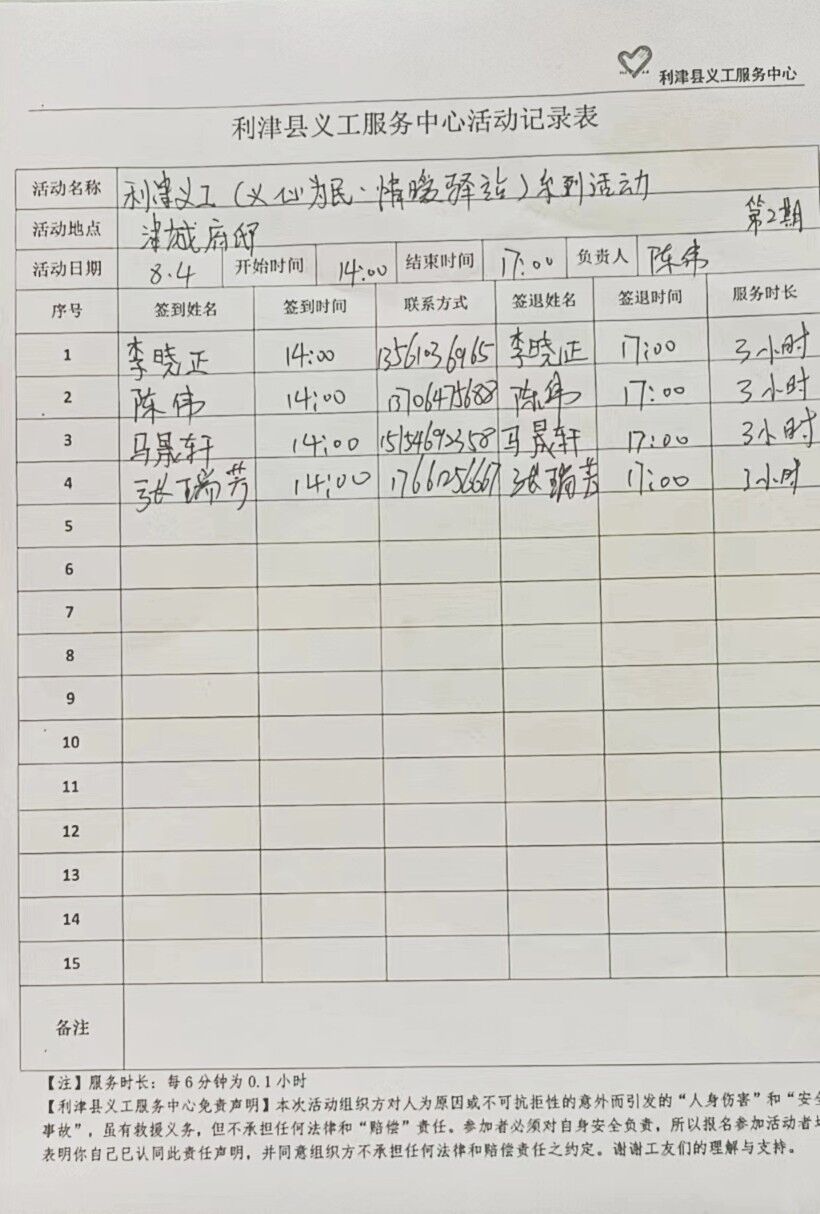 利津县义工服务中心
利津县义工服务中心活动记录表
活动名称 利津义工（义心为民·情暖驿站）系列活动
第2期
活动地点 津城府邸
活动日期 8.4 开始时间 14:00 结束时间 17:00 负责人 陈伟
序号 签到姓名 签到时间 联系方式 签退姓名 签退时间 服务时长
1 李晓正 14:00 13561036965 李晓正 17:00 3小时
2 陈伟 14:00 13706475688 陈伟 17:00 3小时
3 马晟轩 14:00 15154692358 马晟轩 17:00 3小时
4 张瑞芳 14:00 17661256667 张瑞芳 17:00 3小时
5
6
7
8
9
10
11
12
13
14
15
备注
【注】服务时长：每6分钟为0.1小时
【利津县义工服务中心免责声明】本次活动组织方对人为原因或不可抗拒性的意外而引发的“人身伤害”和“安全
事故”，虽有救援义务，但不承担任何法律和“赔偿”责任。参加者必须对自身安全负责，所以报名参加活动者
表明你自己已认同此责任声明，并同意组织方不承担任何法律和赔偿责任之约定。谢谢工友们的理解与支持。